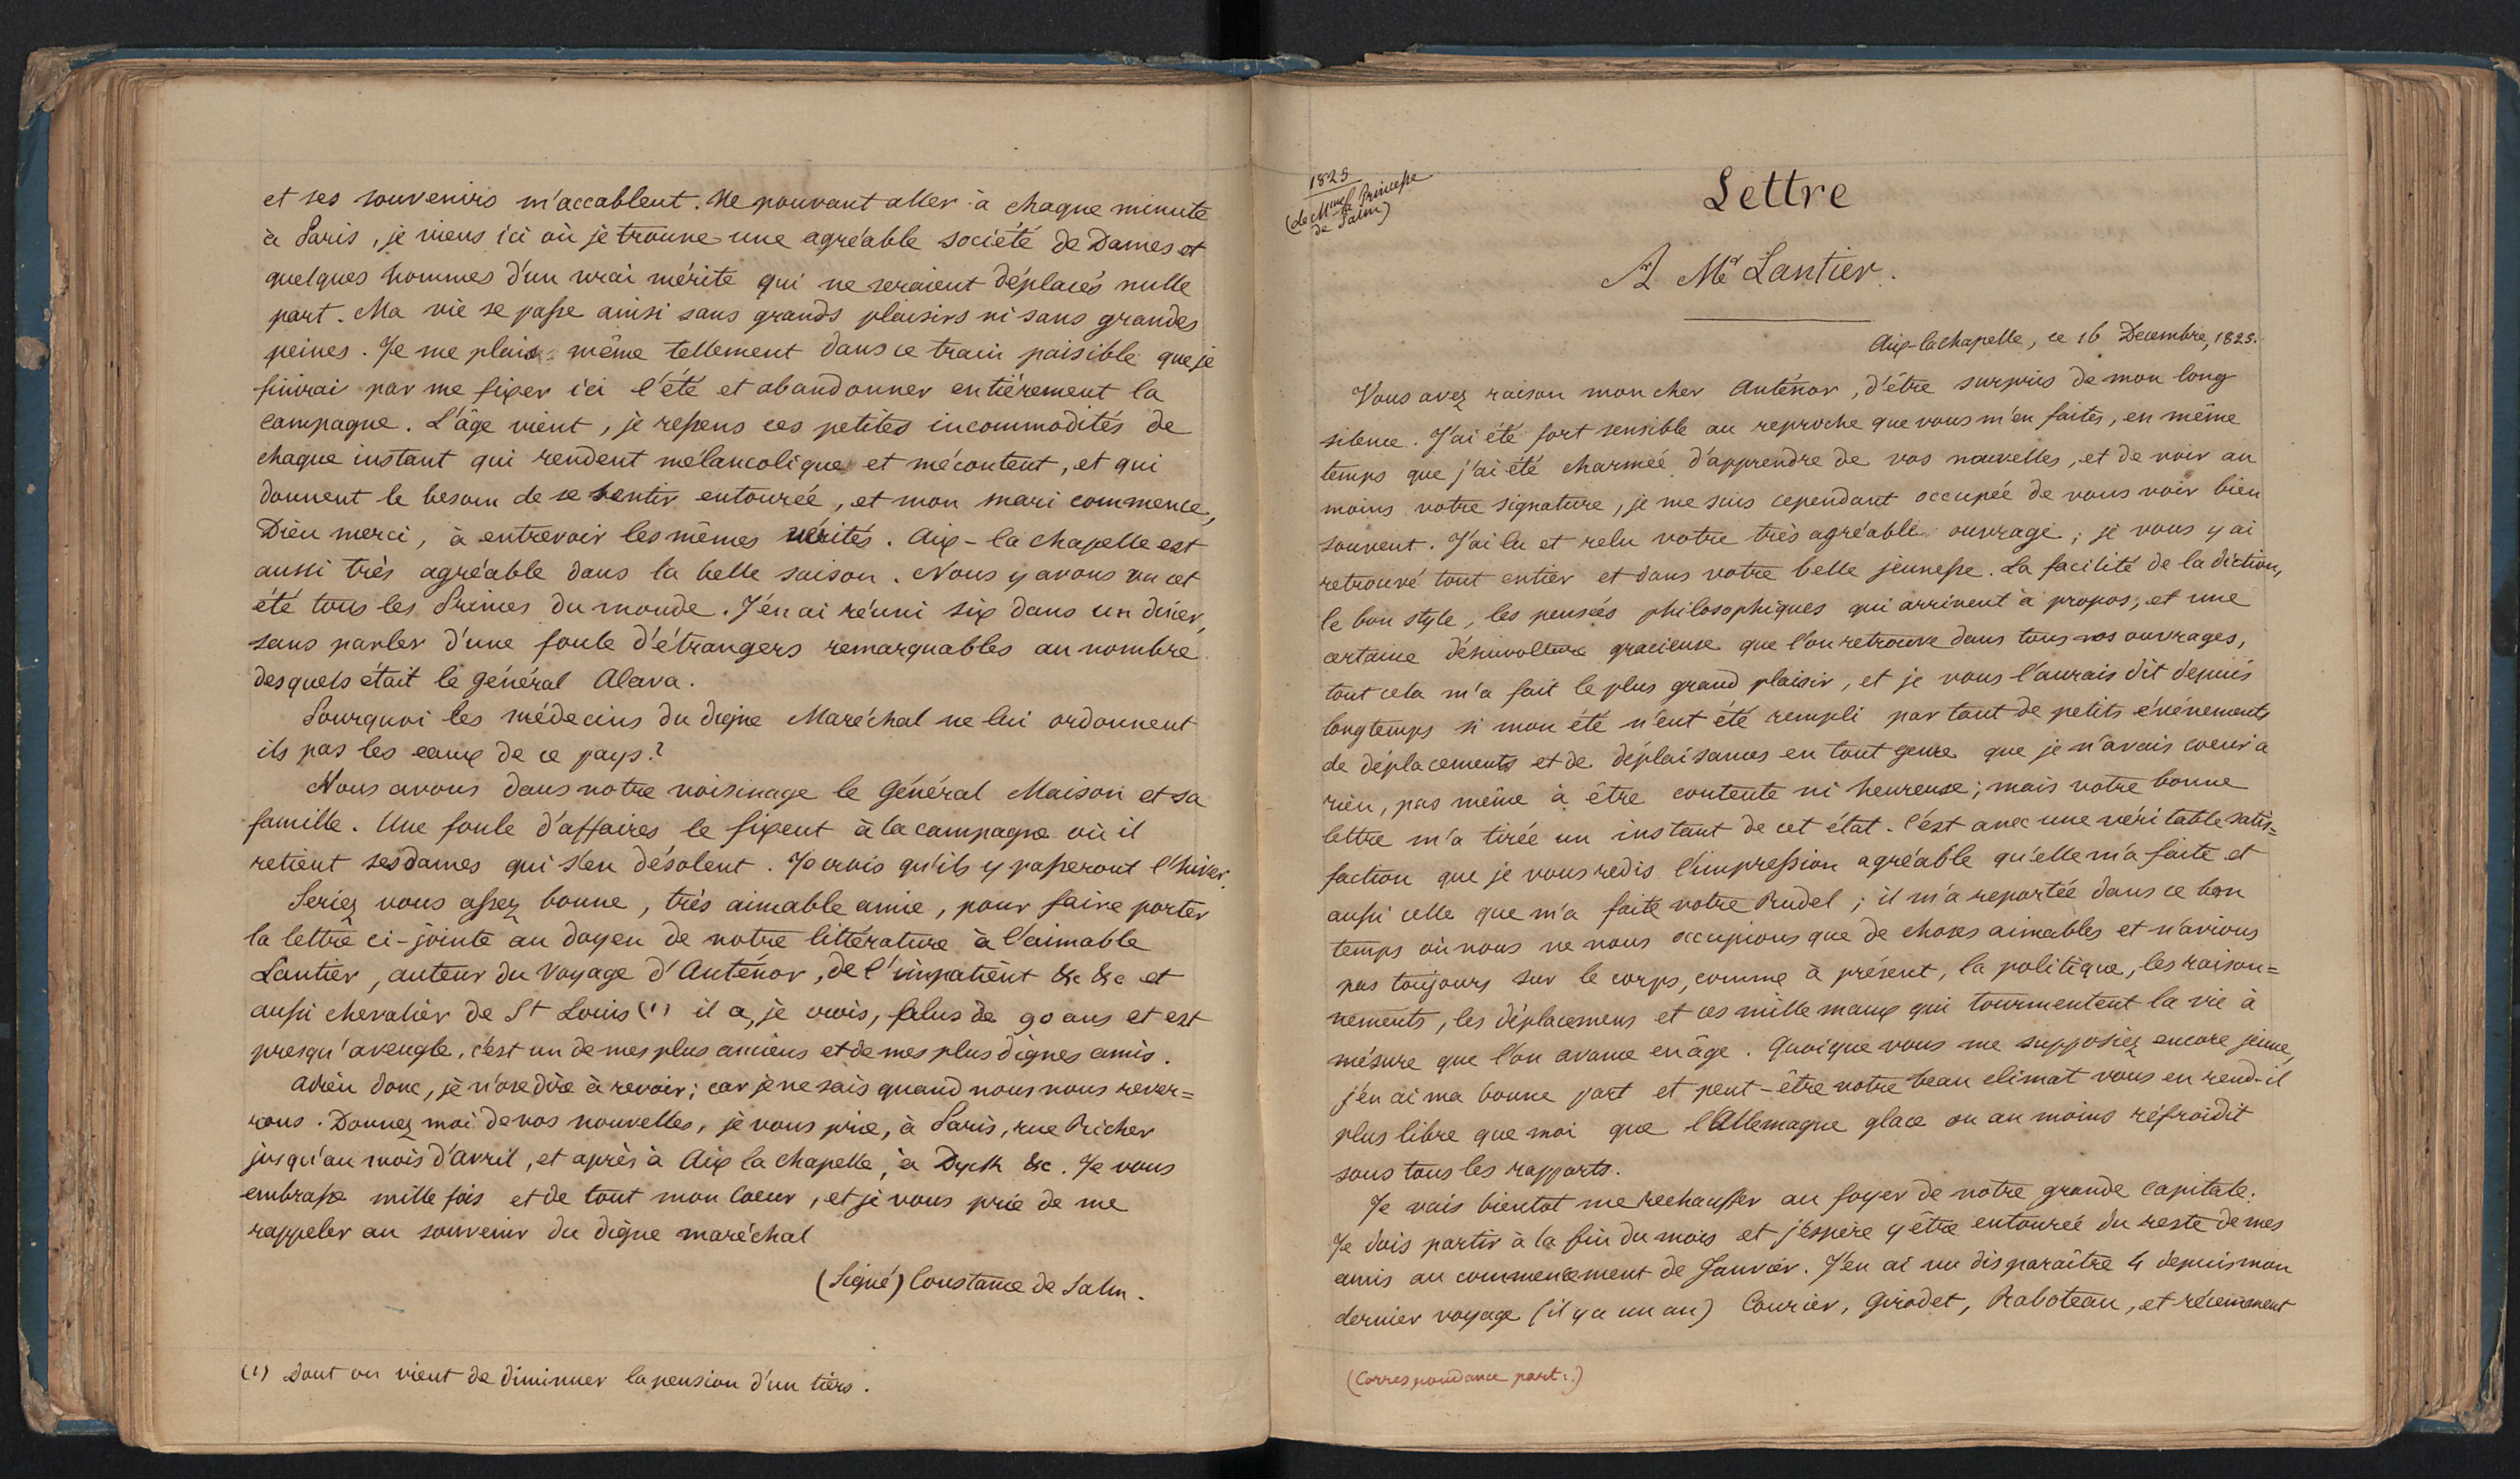 et ses souvenirs m'accablent. Ne pouvant aller à chaque minute
à Paris, je viens ici où je trouve une agréable société de Dames et
quelques hommes d'un vrai mérite qui ne seraient déplacés nulle
part. Ma vie se passe ainsi sans grands plaisirs ni sans grandes
peines. Je me plais même tellement dans ce train paisible que je
finirai par me fixer ici l'été et abandonner entièrement la
campagne. L'âge vient, je ressens ces petites incommodités de
chaque instant qui rendent mélancolique et mécontent, et qui
donnent le besoin de se sentir entourée, et mon mari commence,
Dieu merci, à entrevoir les mêmes vérités. Aix-la chapelle est
aussi très agréable dans la belle saison. Nous y avons vu cet
été tous les Princes du monde. J'en ai réuni six dans un diner,
sans parler d'une foule d'étrangers remarquables au nombre
desquels était le général Alava.
Pourquoi les médecins du digne Maréchal ne lui ordonnent
ils pas les eaux de ce pays?
Nous avons dans notre voisinage le Général Maison et sa
famille. Une foule d'affaires le fixent à la campagne où il
retient ses dames qui s'en désolent. Je crois qu'ils y passeront l'hiver.
Seriez vous assez bonne, très aimable amie, pour faire porter
la lettre ci-jointe au doyen de notre littérature à l'aimable
Lantier, auteur du Voyage d'Anténor, de l'impatient &c &c et
aussi chevalier de St Louis (1) il a, je crois, plus de 90 ans et est
presqu'aveugle, c'est un de mes plus anciens et de mes plus dignes amis.
Adieu donc, je n'ose dire à revoir; car je ne sais quand nous nous rever=
rons. Donnez moi de vos nouvelles, je vous prie, à Paris, rue Richer
jusqu'au mois d'avril, et après à Aix la chapelle, à Dyck &c. Je vous
embrasse mille fois et de tout mon coeur, et je vous prie de me
rappeler au souvenir du digne maréchal
(Signé) Constance de Salm.
(1) Dont on vient de diminuer la pension d'un tiers.
1825
(de Mme la Princesse
de Salm)
Lettre
A Mr Lantier.
Aix-la chapelle, ce 16 Decembre, 1825.
Vous avez raison mon cher Anténor, d'être surpris de mon long
silence. J'ai été fort sensible au reproche que vous m'en faites, en même
temps que j'ai été charmée d'apprendre de vos nouvelles, et de voir au
moins votre signature, je me suis cependant occupée de vous voir bien
souvent. J'ai lu et relu votre très agréable ouvrage; je vous y ai
retrouvé tout entier et dans votre belle jeunesse. La facilité de la diction,
le bon style, les pensées philosophiques qui arrivent à propos; et une
certaine désinvolture gracieuse que l'on retrouve dans tous vos ouvrages,
tout cela m'a fait le plus grand plaisir, et je vous l'aurais dit depuis
longtemps si mon été n'eut été rempli par tant de petits événements
de déplacements et de déplaisances en tout genre que je n'avais coeur à
rien, pas même à être contente ni heureuse; mais votre bonne
lettre m'a tirée un instant de cet état. C'est avec une véritable satis=
faction que je vous redis l'impression agréable qu'elle m'a faite et
aussi celle que m'a faite votre Rudel; il m'a reportée dans ce bon
temps où nous ne nous occupions que de choses aimables et n'avions
pas toujours sur le corps, comme à présent, la politique, les raison=
nements, les déplacemens et ces mille maux qui tourmentent la vie à
mésure que l'on avance en âge. Quoique vous me supposiez encore jeune,
j'en ai ma bonne part et peut-être votre beau climat vous en rend-il
plus libre que moi que l'Allemagne glace ou au moins réfroidit
sous tous les rapports.
Je vais bientot me rechauffer au foyer de notre grande capitale.
Je dois partir à la fin du mois et j'espère y être entourée du reste de mes
amis au commencement de Janvier. J'en ai vu disparaître 4 depuis mon
dernier voyage (il y a un an) Courier, Girodet, Raboteau, et récemment
(Correspondance part:.)